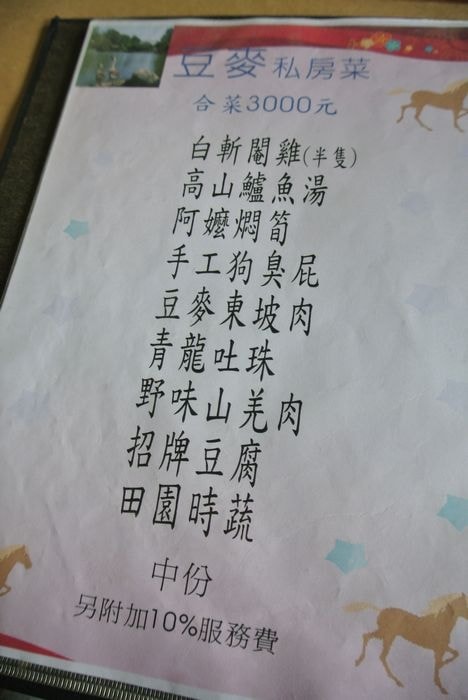 豆麥私房菜
合菜3000元
白斬閹雞(半隻)
高山鱸魚湯
阿嬤燜筍
手工狗臭屁
豆麥東坡肉
青龍吐珠
野味山羌肉
招牌豆腐
田園時蔬
中份
另附加10%服務費